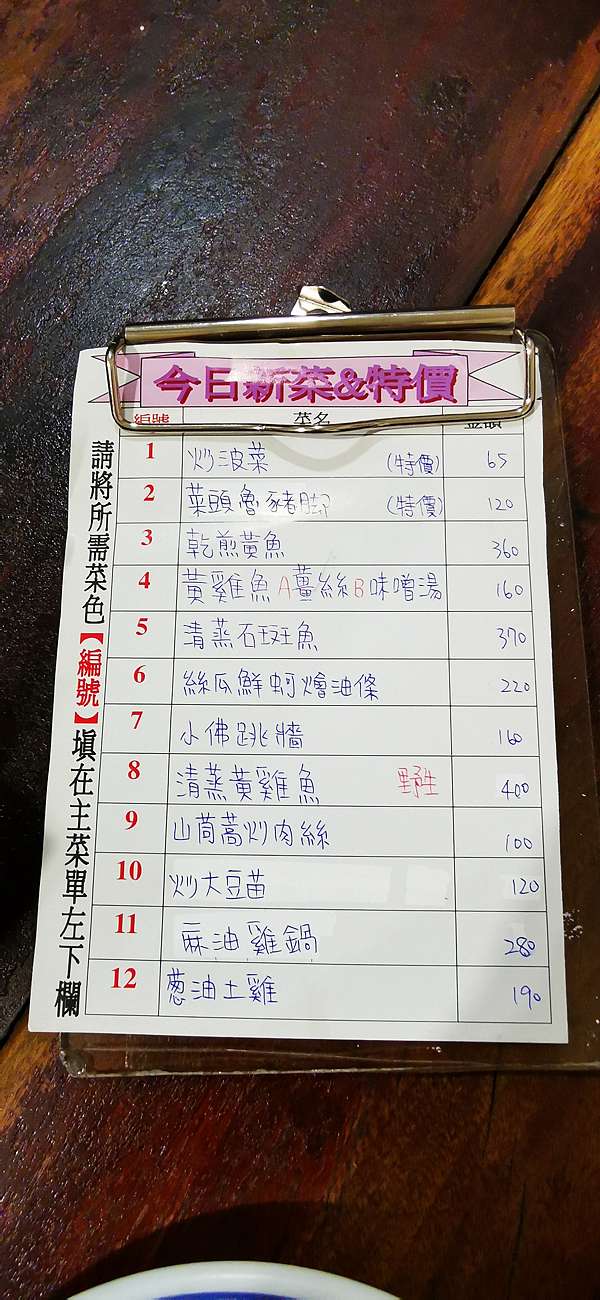 今日新菜&特價
編號 菜名 金額
1 炒波菜 (特價) 65
2 菜頭魯豬腳 (特價) 120
3 乾煎黃魚 360
4 黃雞魚A薑絲B味噌湯 160
5 清蒸石斑魚 370
6 絲瓜鮮蚵燴油條 220
7 小佛跳牆 160
8 清蒸黃雞魚 野生 400
9 山茼蒿炒肉絲 100
10 炒大豆苗 120
11 麻油雞鍋 280
12 蔥油土雞 190
請將所需菜色【編號】填在主菜單左下欄